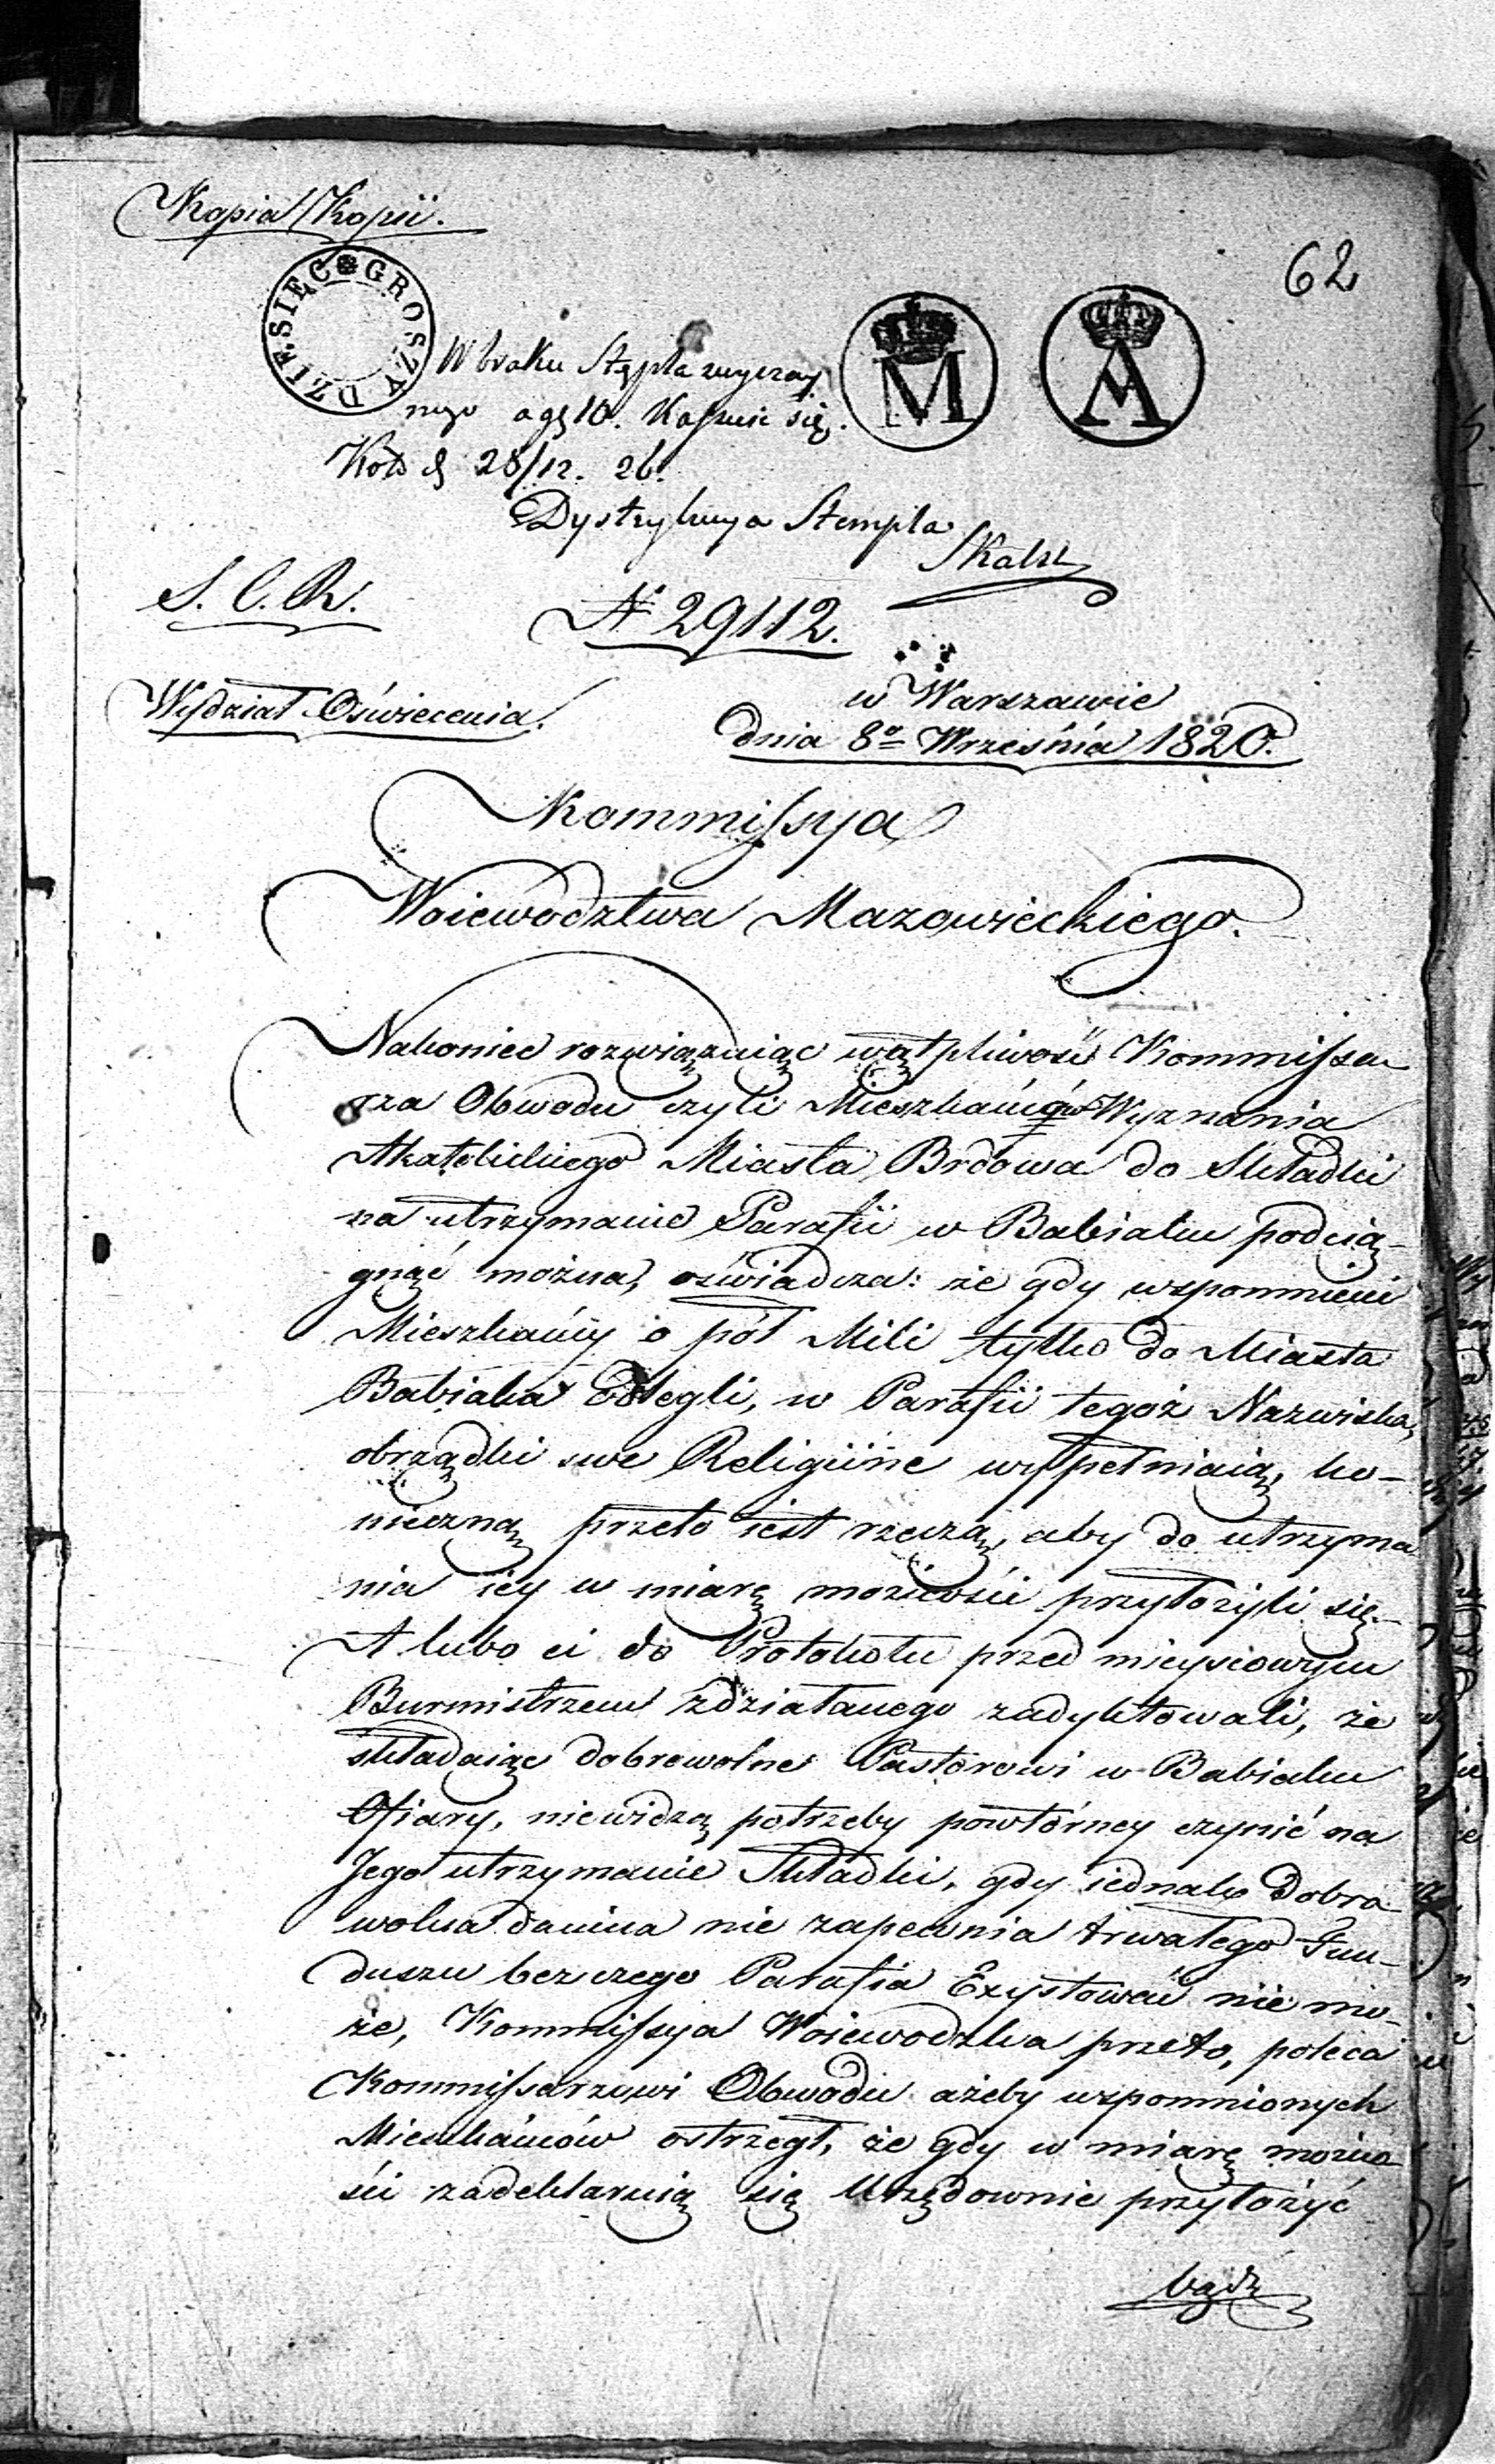 Kopia Kopii.
62
DZIESIĘC GROSZY
W braku Stępla zwyczay
nego a gr 10. Kassuie się.
M
A
Koło d 28/12. 26.
Dystrybucya Stempla
S. C. R.
N 29112.
w Warszawie
Wydział Oświecenia.
dnia 8o Września 1820.
Kommissya
Woiewodztwa Mazowieckiego.
Nakoniec rozwiązuiąc wątpliwość Kommissa
rza Obwodu czyli Mieszkańców Wyznania
Akatolickiego Miasta Brdowa do Składki
na utrzymanie Parafii w Babiaku podcią-
gnąć można, oświadcza: że gdy wspomnieni
Mieszkańcy o pół Mili tylko do Miasta
Babiaka Odlegli, w Parafii tegoż Nazwiska,
obrządki swe Religiine wypełniaią, ko-
nieczną przeto iest rzeczą, aby do utrzyma
nia iey w miarę możności przyłożyli się.-
A lubo ci do Protokołu przed mieyscowym
Burmistrzem zdziałanego zadyktowali, że
składaiąc dobrowolne Pastorowi w Babiaku
Ofiary, niewidzą potrzeby powtórney czynić na
Jego utrzymanie Składki, gdy iednak Dobro-
wolna danina nie zapewnia trwałego Fun-
duszu bez czego Parafia Exystować nie mo-
że, Kommissya Woiewodzka przeto, poleca
Kommissarzowi Obwodu ażeby wspomnionych
Mieszkańców ostrzegł, że gdy w miarę możno-
ści zadeklaruią się Urzędownie przyłożyć
bądź